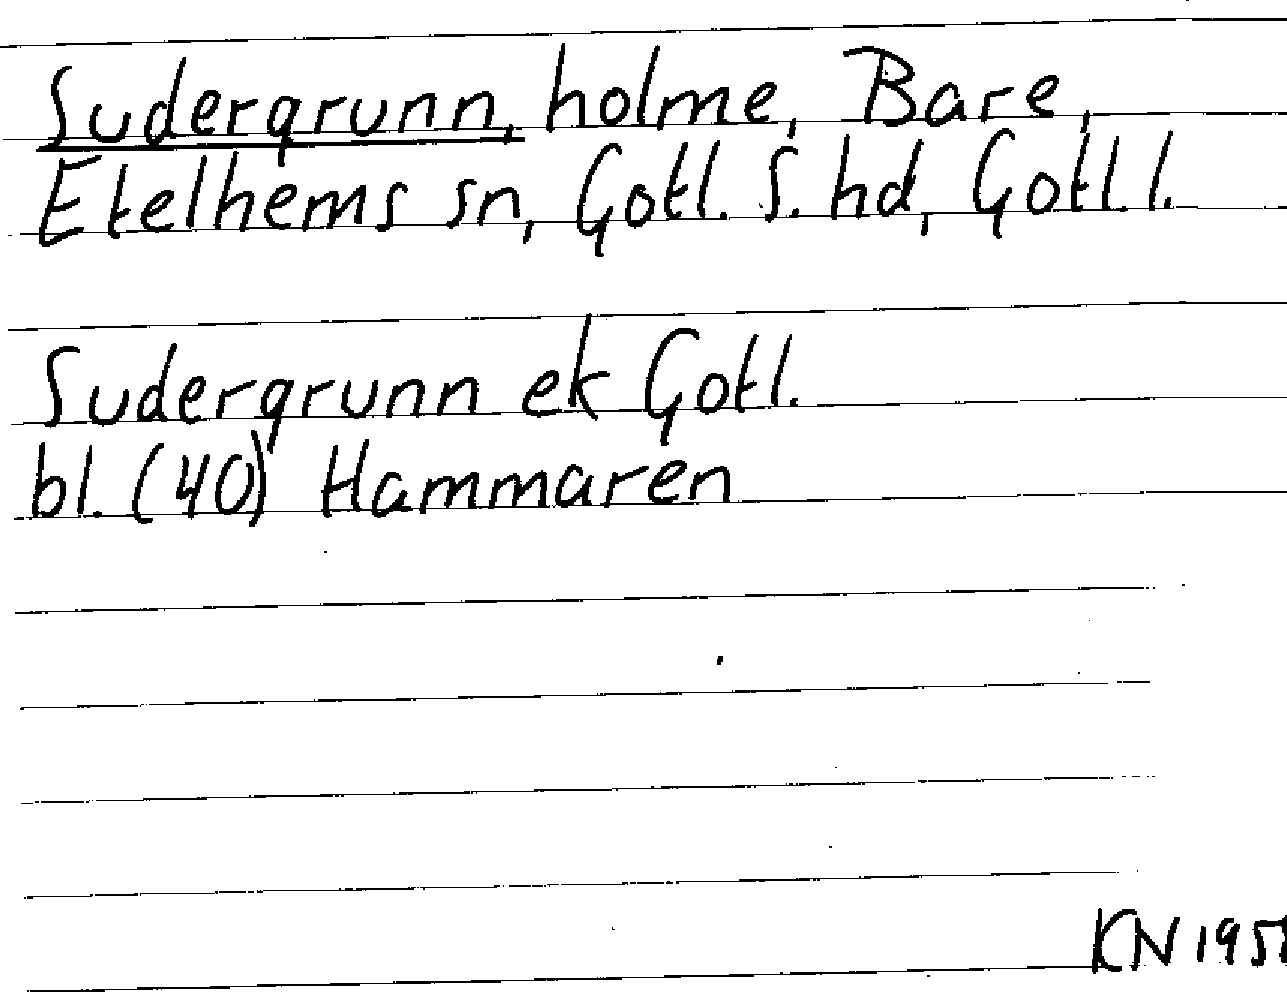 Sudergrunn, holme, Bare,
Etelhems sn, Gotl. S. hd, Gotl. l.
Sudergrunn ek Gotl.
bl. (40) Hammaren
KN